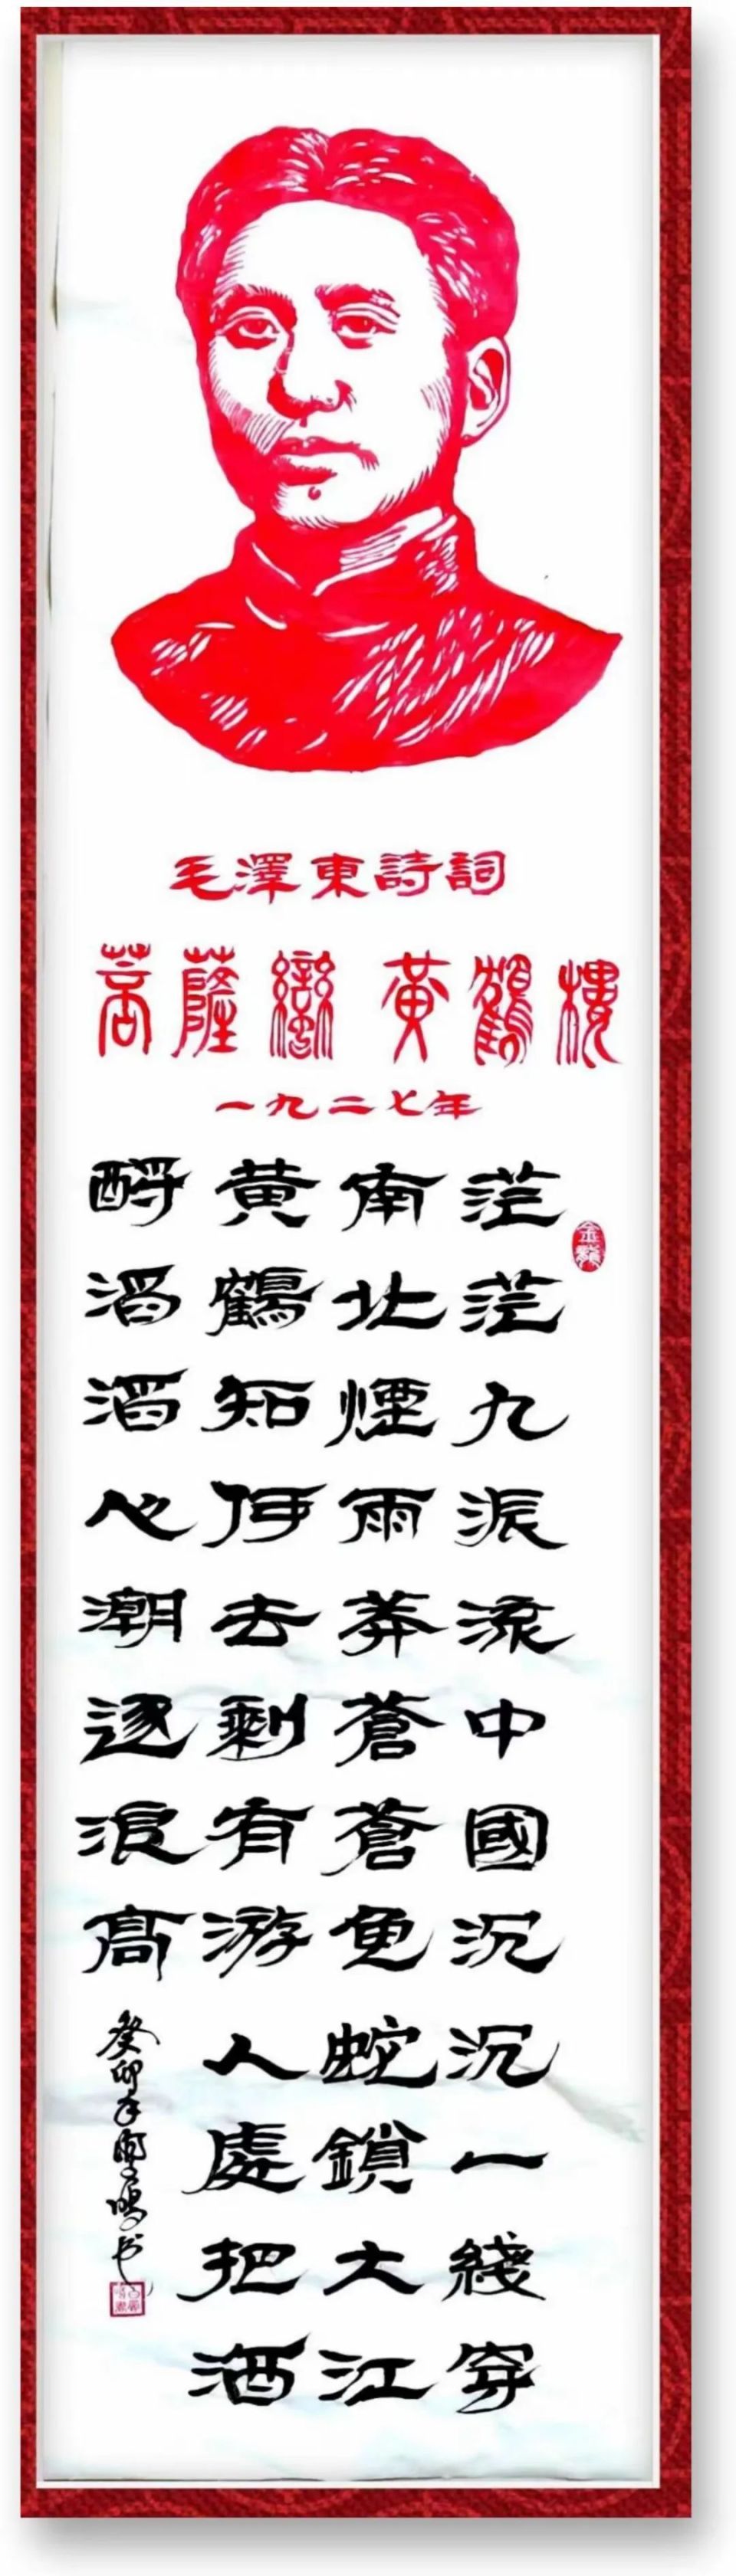 毛澤東詩詞
菩薩蠻 黄鶴樓
一九二七年
茫茫九派流中國沉沉一綫穿
南北煙雨莽蒼蒼龜蛇鎖大江
黄鶴知何去剩有游人處把酒
酹滔滔心潮逐浪高
癸卯年鳴书